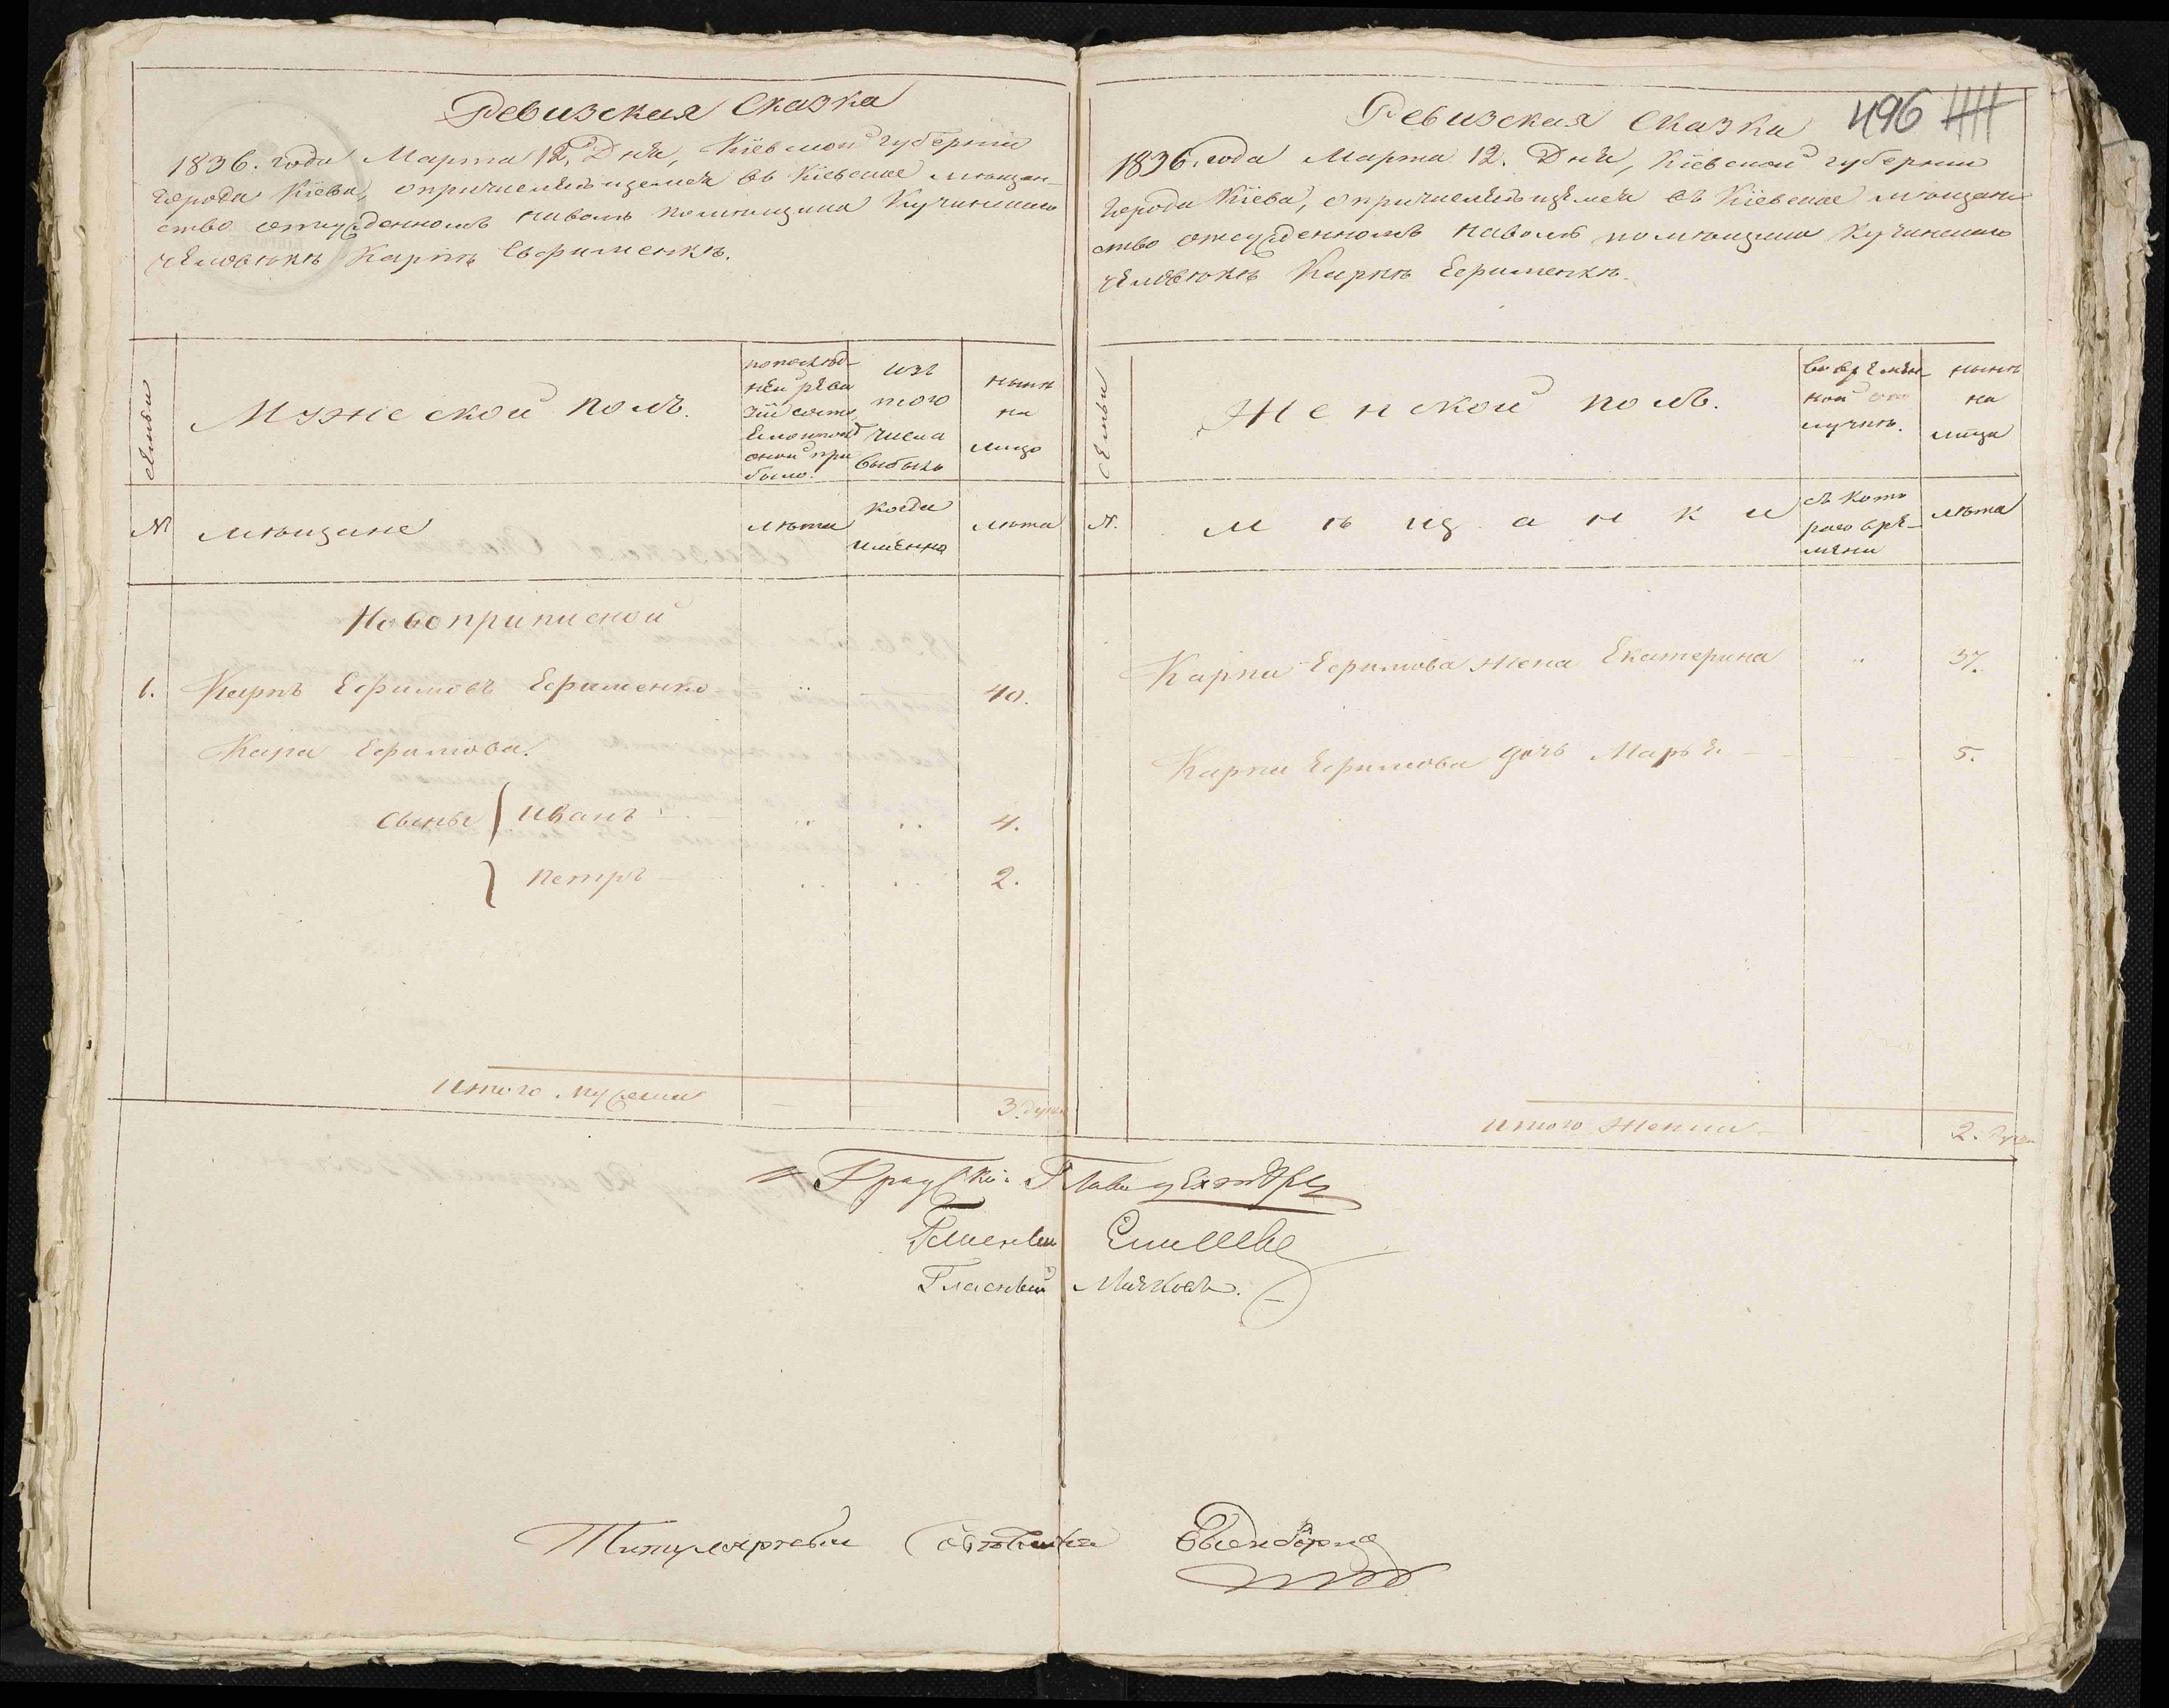 Ревизская Сказка
1836. года Марта 12. Дня, Кіевской губерніи
города Кіева, о причисляющемся въ Кіевское мѣщан-
ство отпущенномъ на волю помѣщика
человѣкѣ Карпѣ Ефименкѣ.
семьи
Мужеской полъ.
по послѣд-
ней реви
зіи состо
яло и послѣ
оной при
было.
изъ
того
числа
выбыло
нынѣ
на
лицо
№
мѣщане
лѣта
когда
именно
лѣта
Новоприписной
1. Карпъ Ефимовъ Ефименко 40.
Карпа Ефимова
сыны Иванъ 4.
Петръ 2.
Итого мужеска 3. души
496
Ревизская Сказка
1836. года Марта 12. Дня, Кіевской губерніи
города Кіева, о причисляющемся въ Кіевское мѣщан
ство отпущенномъ на волю помѣщика
человѣкѣ Карпѣ Ефименкѣ.
семьи
Женской полъ.
во времен-
ной отлучкѣ.
нынѣ
на
лицо
№.
мѣщанки
съ кото
раго вре-
мени
лѣта
Карпа Ефимова жена Екатерина 37.
Карпа Ефимова дочь Марья 5.
Итого женска 2. души
Градской Глава
Гласный
Гласный
Титулярный Совѣтникъ